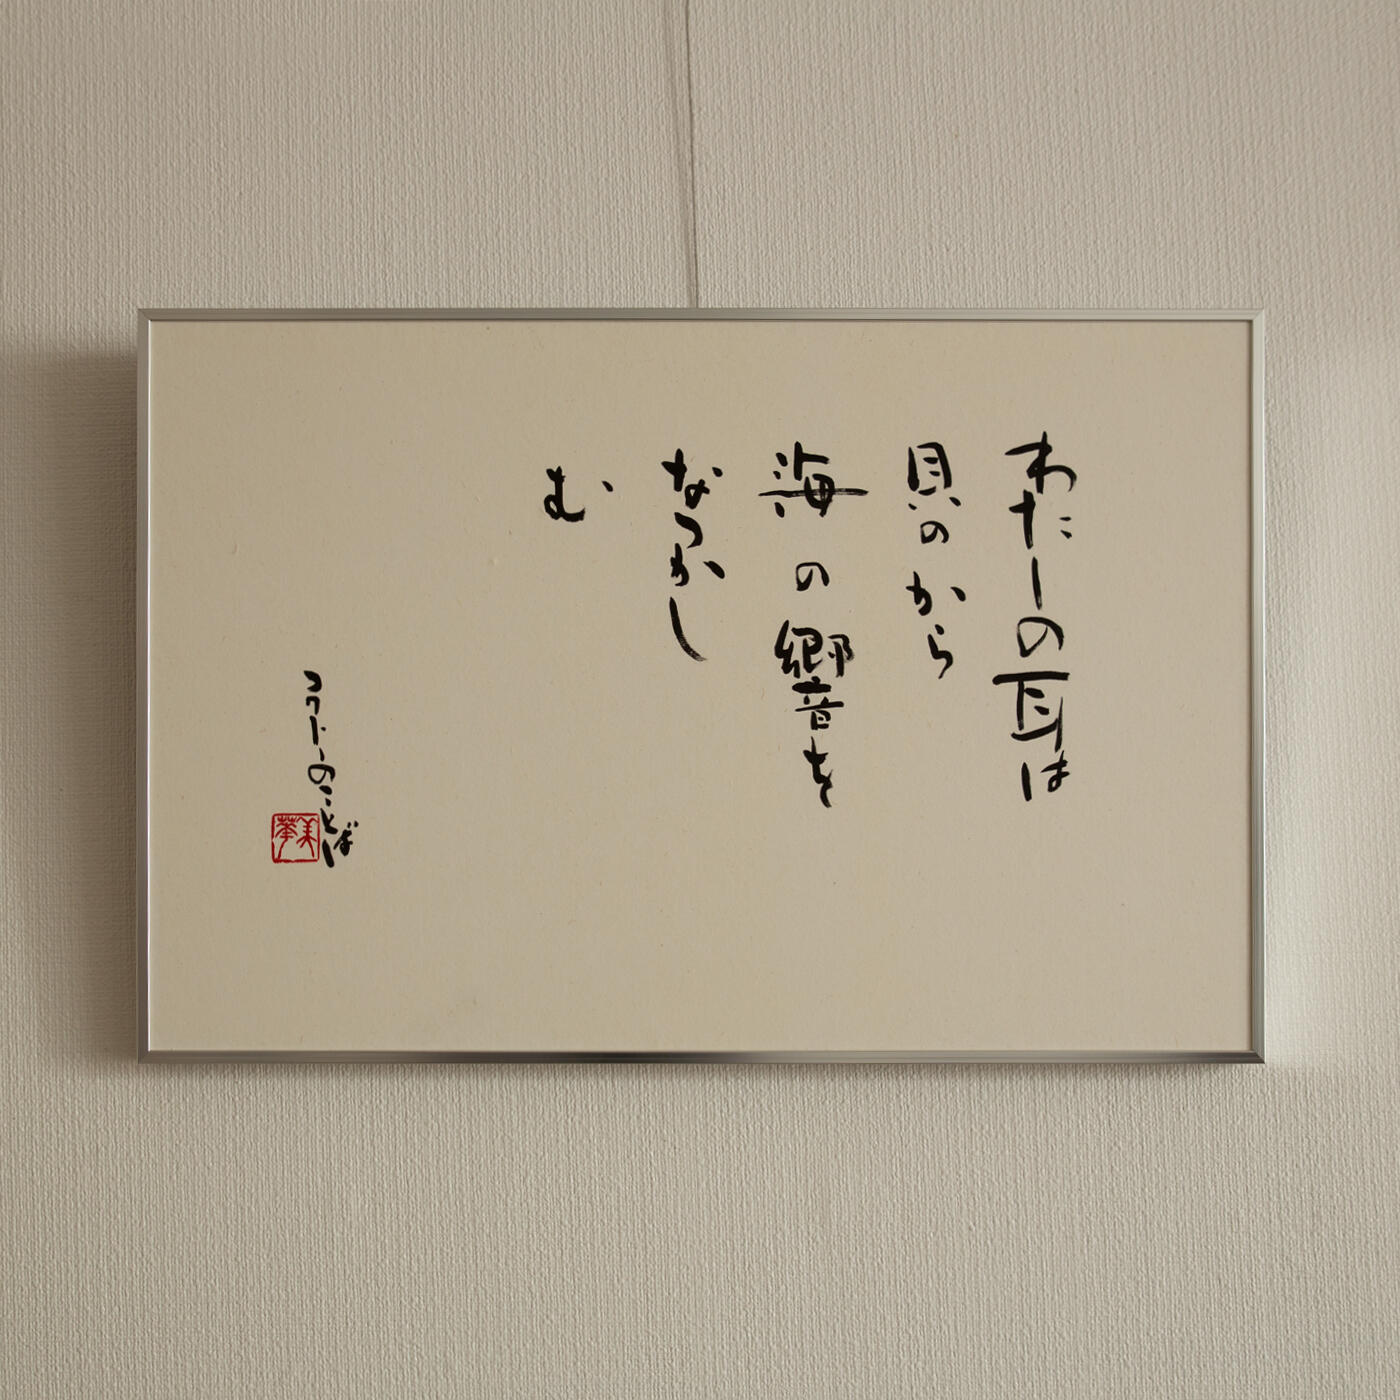 わたしの耳は
貝のから
海の響を
なつかし
む
コクトーのことば
美華